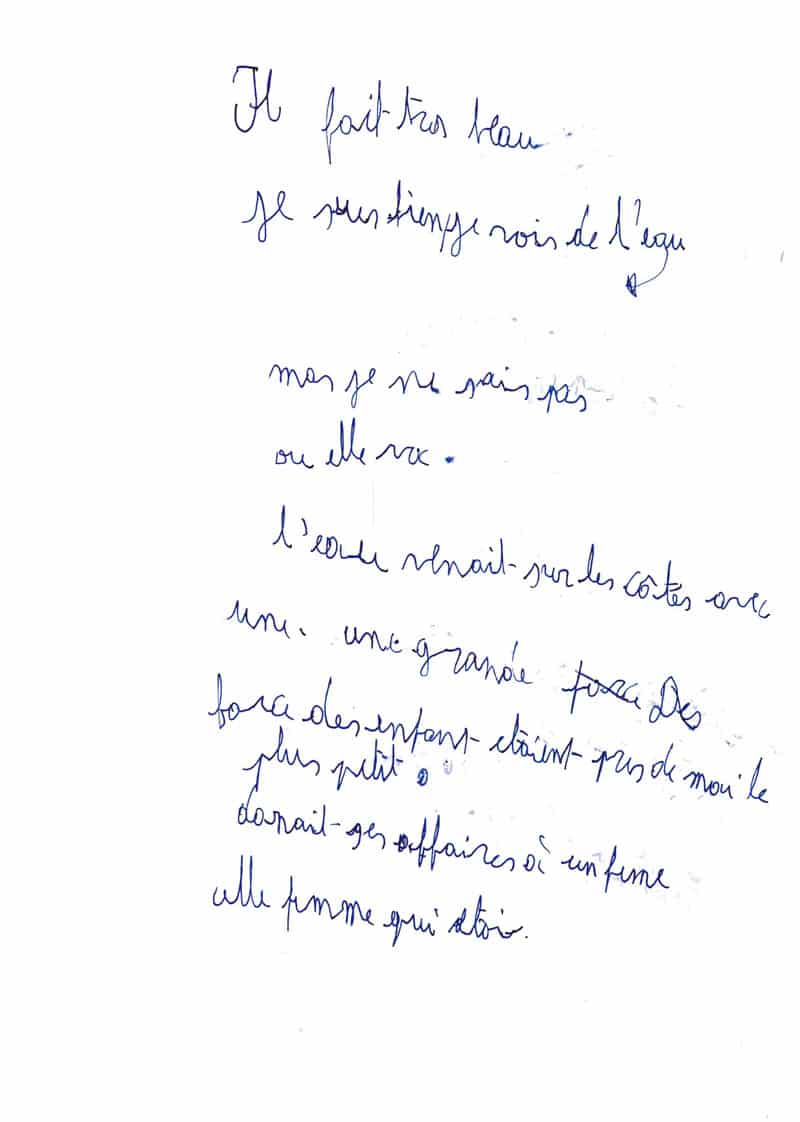 Il fait trs beau
je suis bien je vois de l'eau
mas je ne sais pas
ou elle va.
l'eau venait sur les côtés avec
une. une grande force Des
force des enfant etaient pres de moi le
plus petit.
donait ges affaires à un feme
elle femme qui etai.